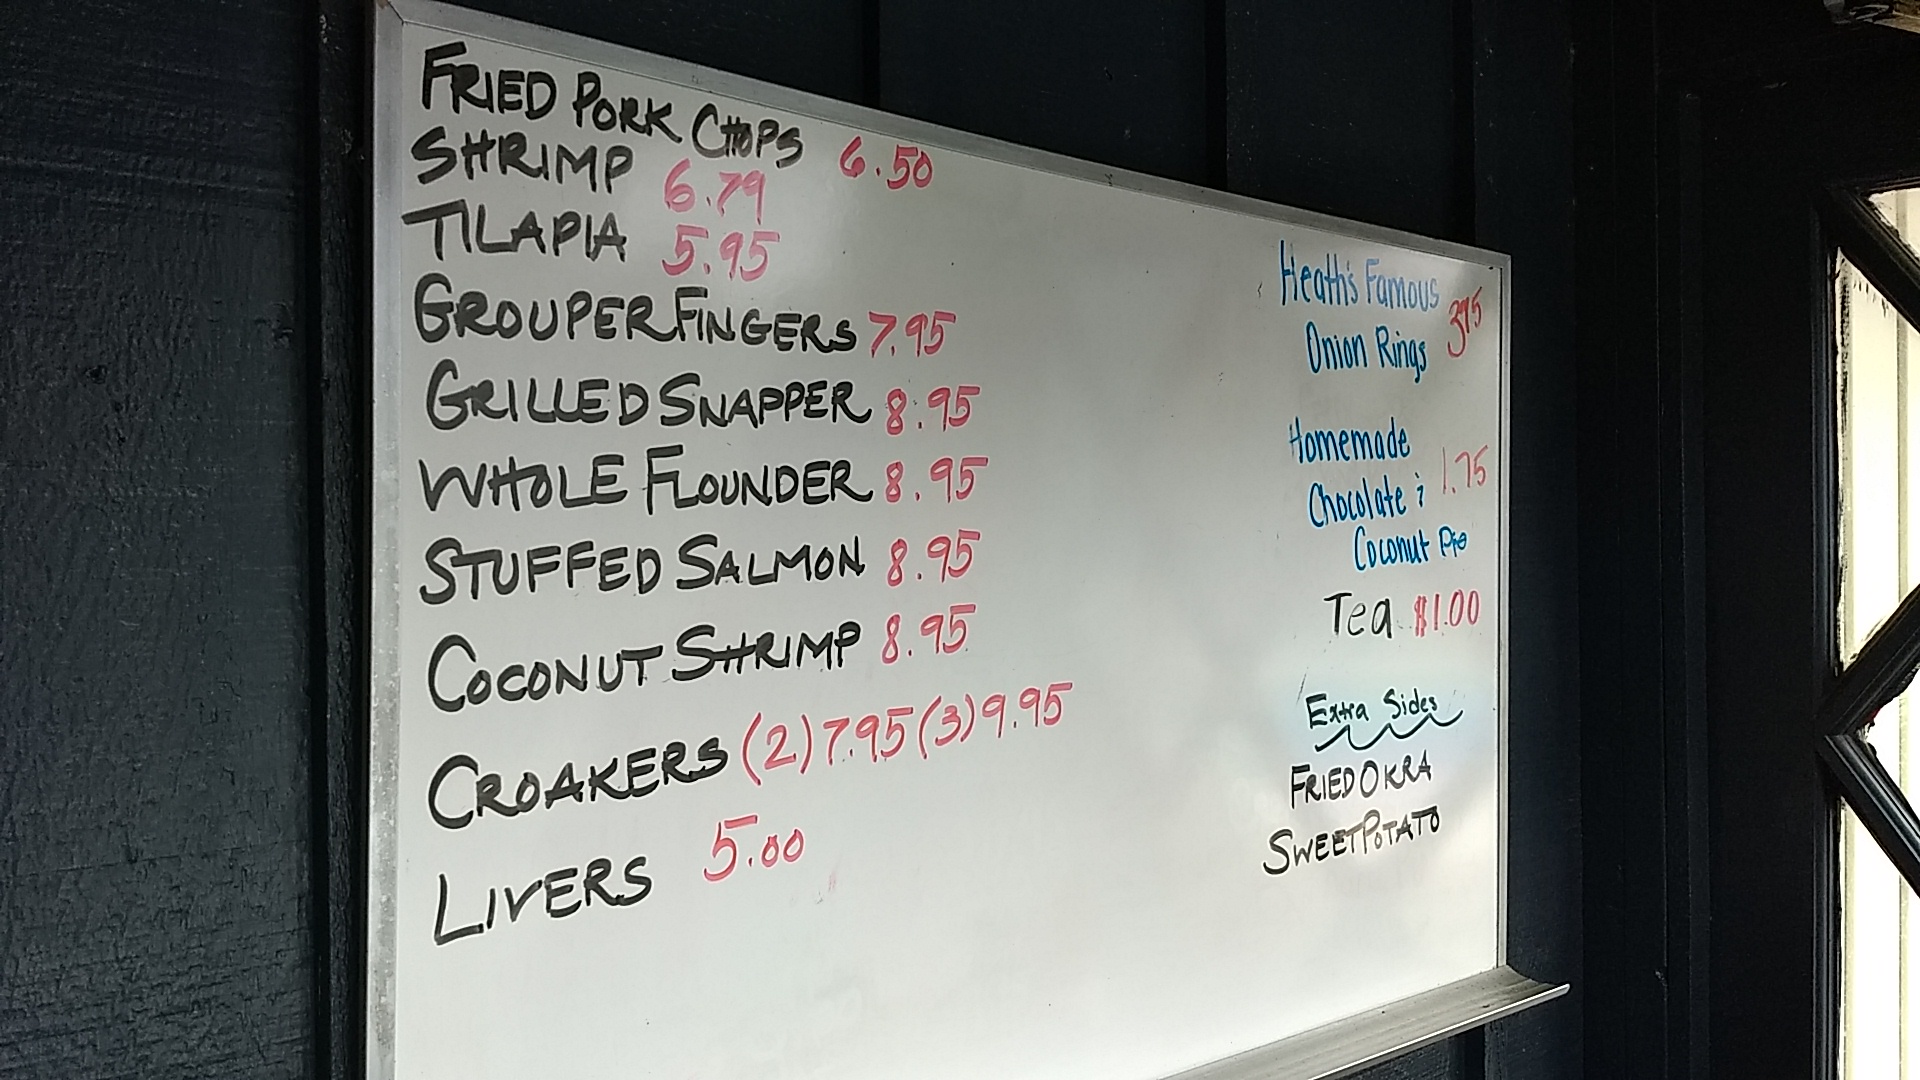 FRIED PORK CHOPS 6.50
SHRIMP 6.79
TILAPIA 5.95
GROUPER FINGERS 7.95
GRILLED SNAPPER 8.95
WHOLE FLOUNDER 8.95
STUFFED SALMON 8.95
COCONUT SHRIMP 8.95
CROAKERS (2) 7.95 (3) 9.95
LIVERS 5.00
Heath's Famous
Onion Rings 3.95
Homemade
Chocolate & 1.75
Coconut Pie
Tea $1.00
Extra Sides
FRIED OKRA
SWEET POTATO